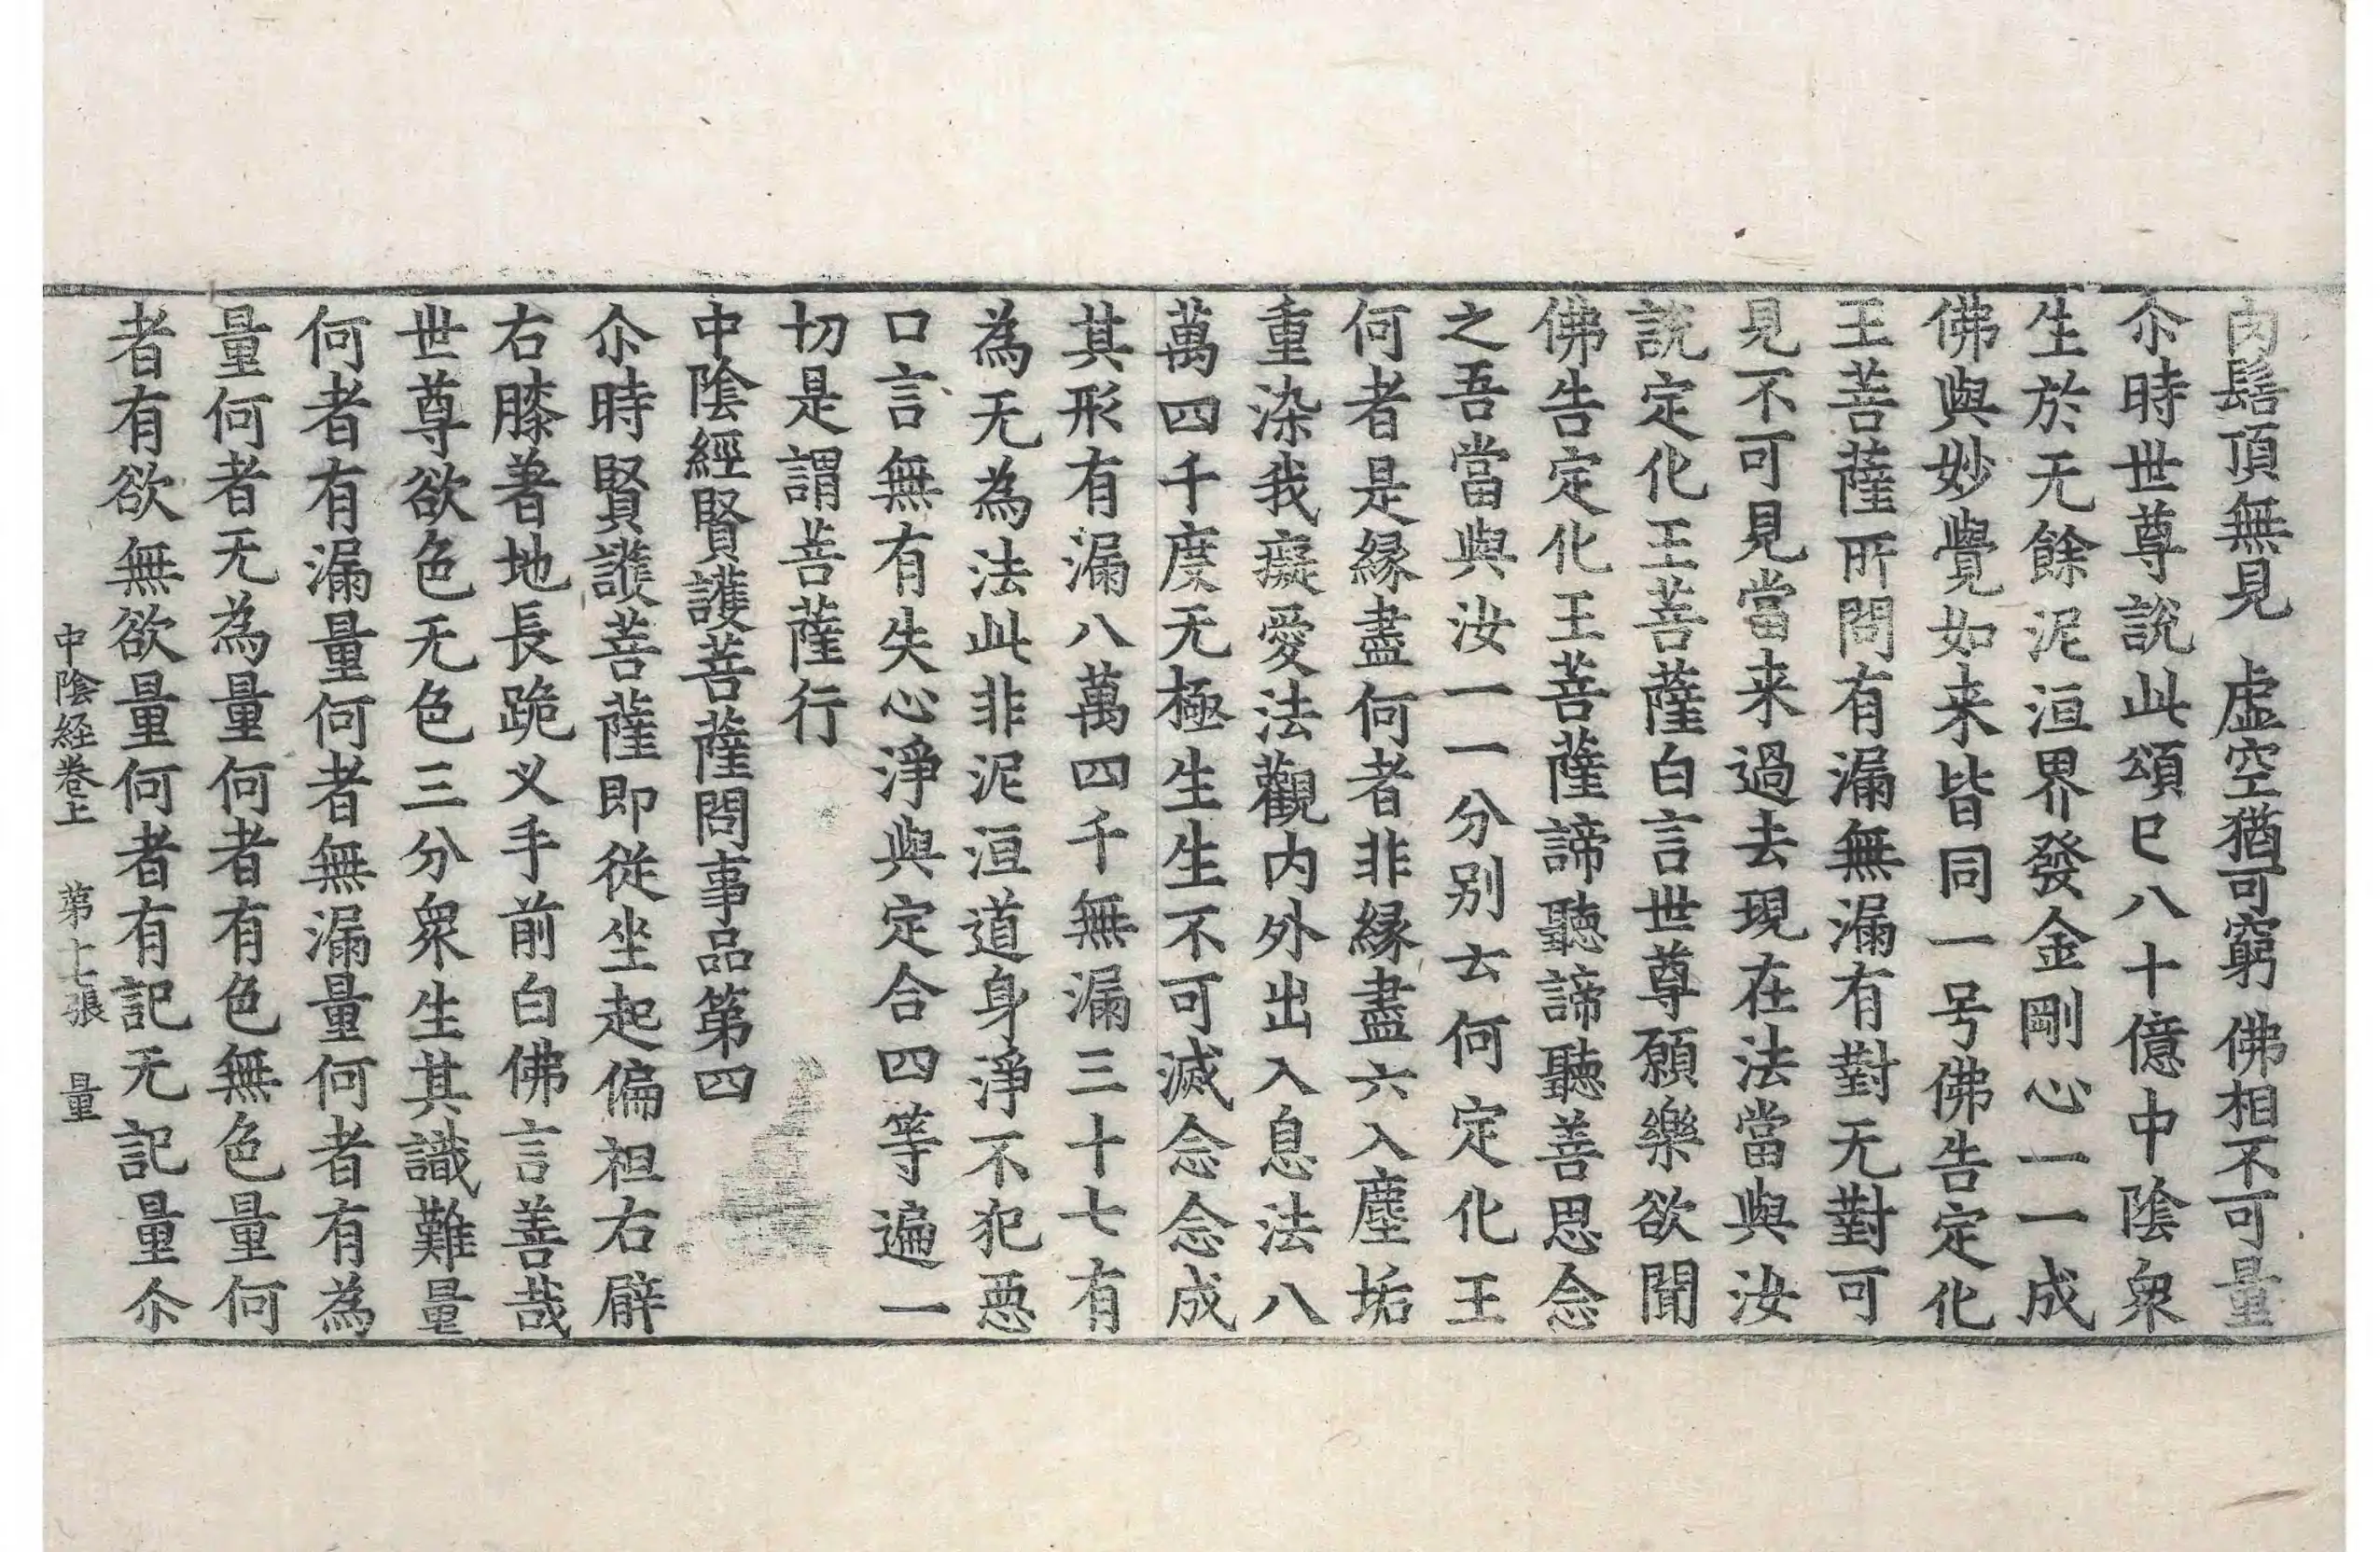 肉髻頂無見 虛空猶可窮 佛相不可量
尒時世尊說此頌已八十億中陰衆
生於无餘泥洹界發金剛心一一成
佛與妙覺如来皆同一号佛告定化
王菩薩所問有漏無漏有對无對可
見不可見當来過去現在法當與汝
說定化王菩薩白言世尊願樂欲聞
佛告定化王菩薩諦聽諦聽善思念
之吾當與汝一一分别云何定化王
何者是緣盡何者非緣盡六入塵垢
重染我癡愛法觀内外出入息法八
萬四千度无極生生不可滅念念成
其形有漏八萬四千無漏三十七有
為无為法此非泥洹道身淨不犯惡
口言無有失心淨與定合四等遍一
切是謂菩薩行
中陰經賢護菩薩問事品第四
尒時賢護菩薩即從坐起偏袒右臂
右膝著地長跪叉手前白佛言善哉
世尊欲色无色三分衆生其識難量
何者有漏量何者無漏量何者有為
量何者无為量何者有色無色量何
者有欲無欲量何者有記无記量尒
中陰経卷上 第十七張 量